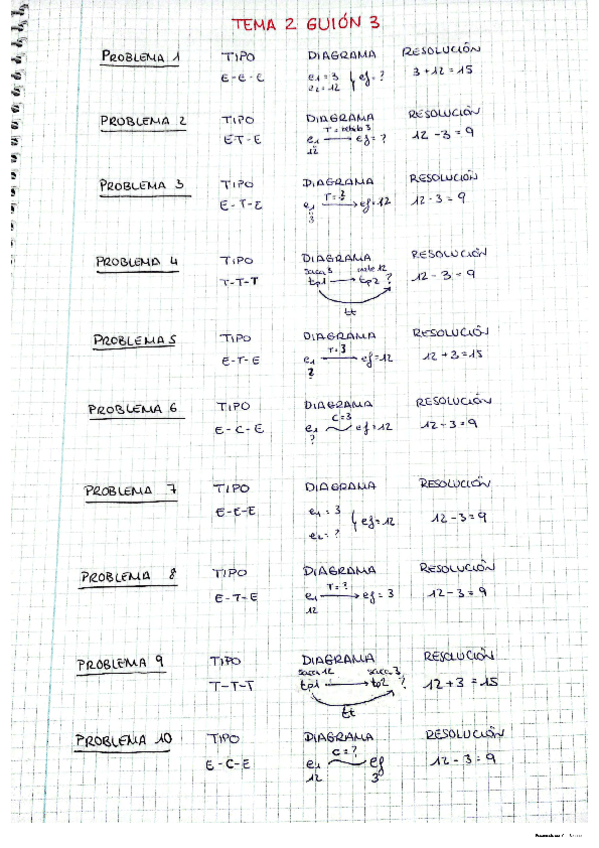 TEMA 2 GUIÓN 3
PROBLEMA 1 TIPO DIAGRAMA RESOLUCIÓN
E-E-E e1 = 3 ef = ? 3 + 12 = 15
e2 = 12
PROBLEMA 2 TIPO DIAGRAMA RESOLUCIÓN
ET-E e1 ef = ? 12 - 3 = 9
12
PROBLEMA 3 TIPO DIAGRAMA RESOLUCIÓN
E-T-E e1 ef = 12 12 - 3 = 9
3
PROBLEMA 4 TIPO DIAGRAMA RESOLUCIÓN
T-T-T tp1 tp2 ? 12 - 3 = 9
tt
PROBLEMA 5 TIPO DIAGRAMA RESOLUCIÓN
T = 3
E-T-E e1 ef = 12 12 + 3 = 15
?
PROBLEMA 6 TIPO DIAGRAMA RESOLUCIÓN
C = 3
E-C-E e1 ef = 12 12 - 3 = 9
?
PROBLEMA 7 TIPO DIAGRAMA RESOLUCIÓN
E-E-E e1 = 3 ef = 12 12 - 3 = 9
e2 = ?
PROBLEMA 8 TIPO DIAGRAMA RESOLUCIÓN
T = ?
E-T-E e1 ef = 3 12 - 3 = 9
12
PROBLEMA 9 TIPO DIAGRAMA RESOLUCIÓN
saca 12 saca 3
T-T-T tp1 tp2 ? 12 + 3 = 15
tt
PROBLEMA 10 TIPO DIAGRAMA RESOLUCIÓN
C = ?
E-C-E e1 ef 12 - 3 = 9
12 3